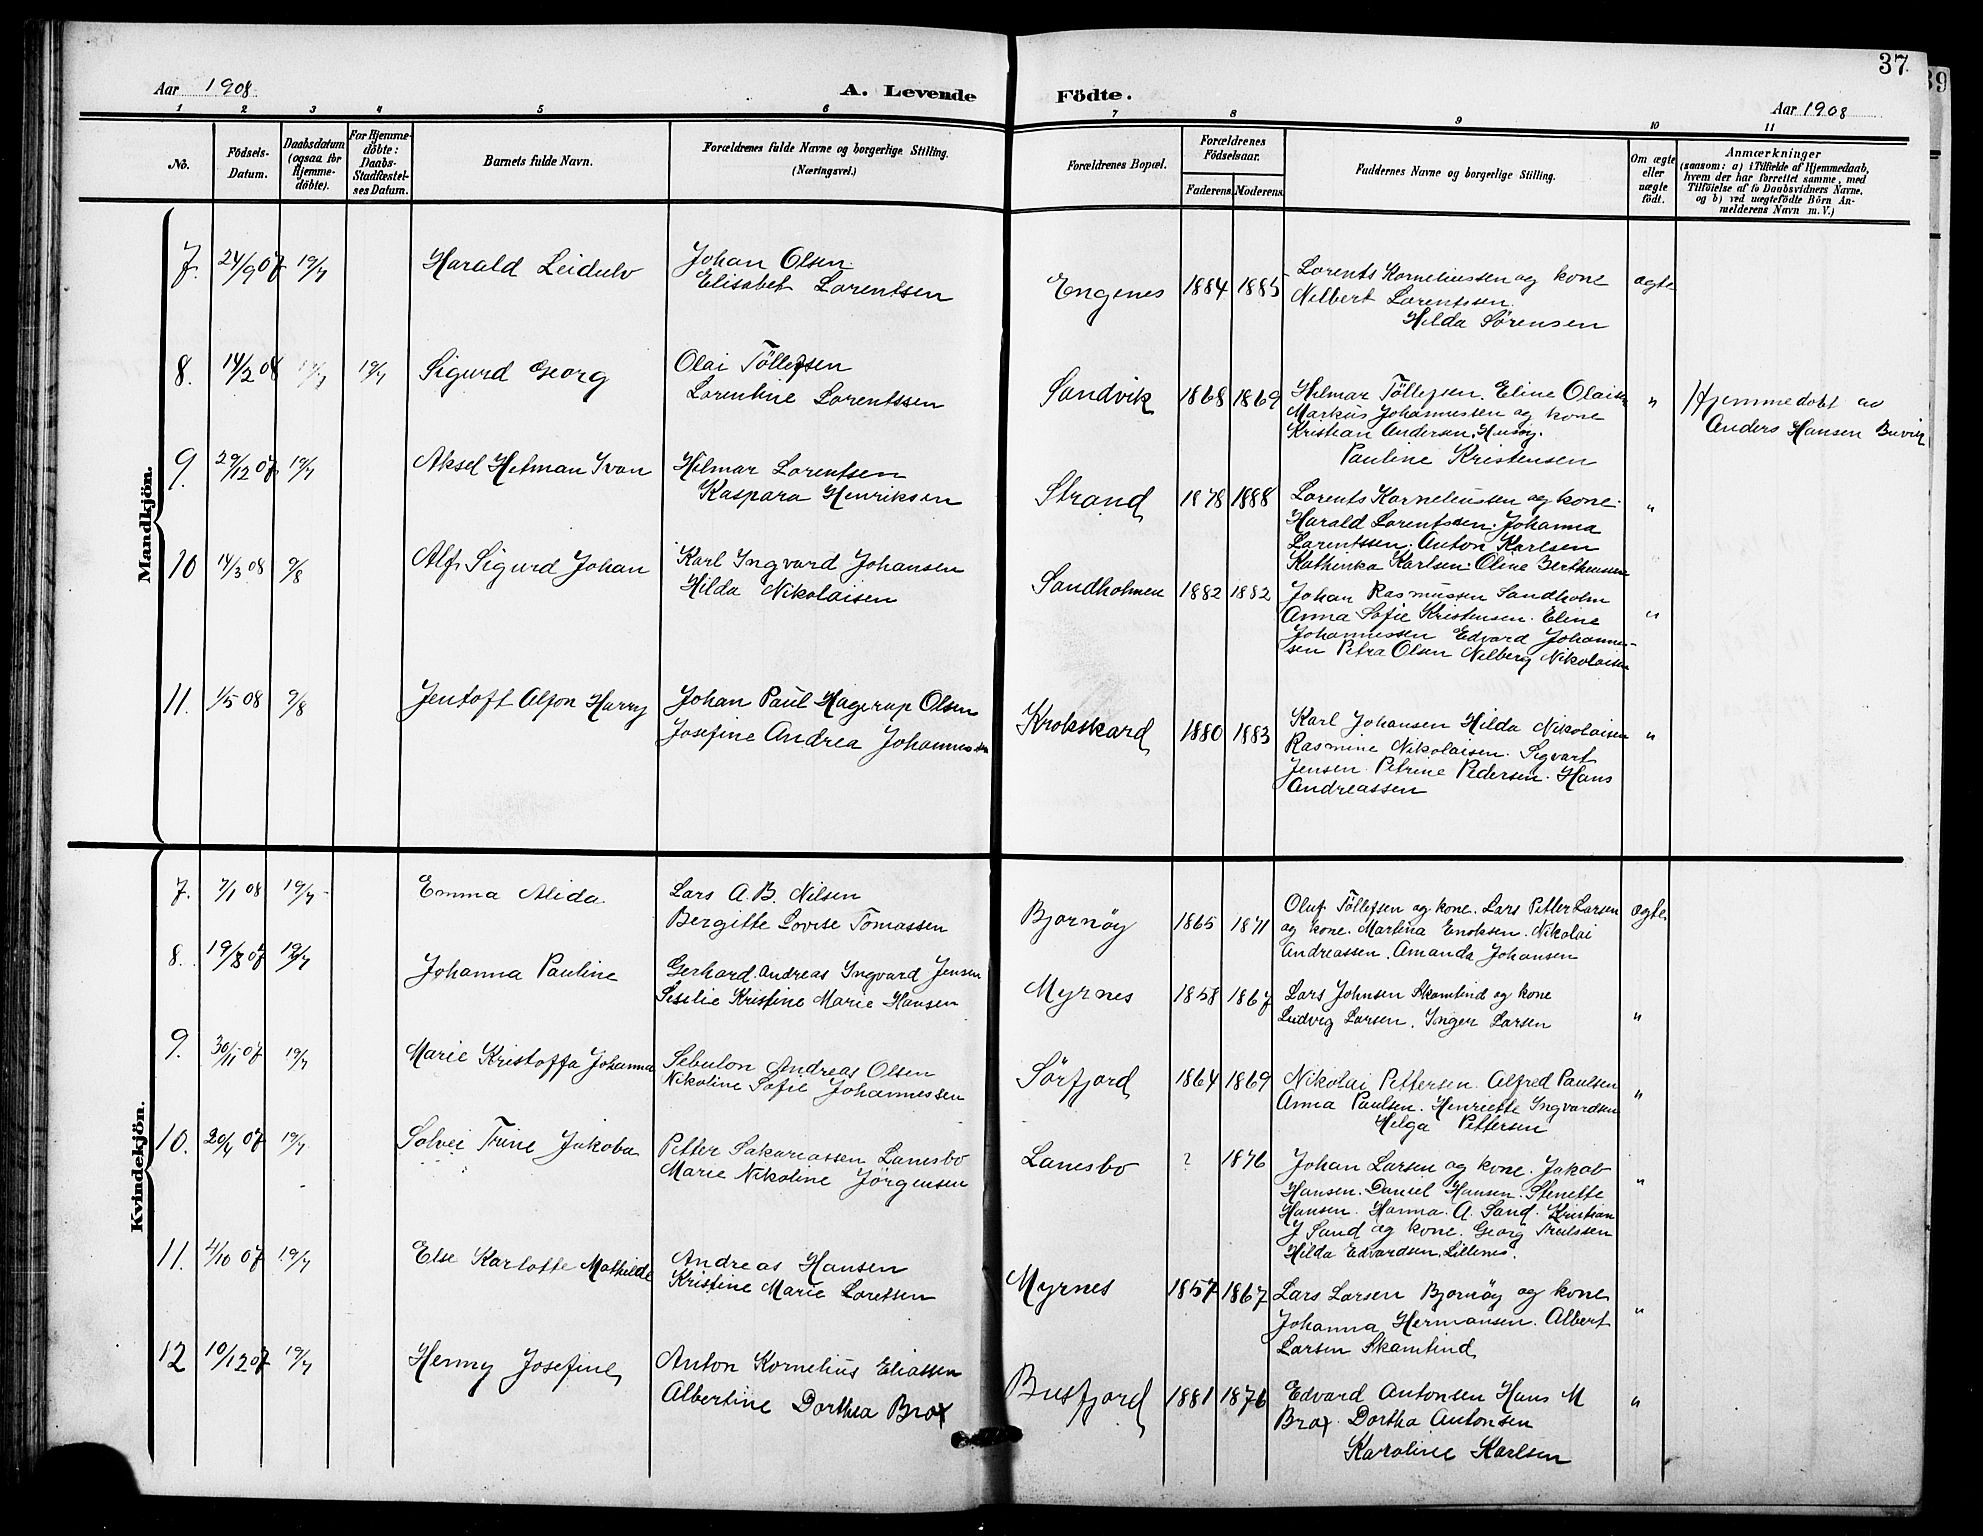 37
39
Aar 1908.
A. Levende Födte.
Aar 1908
1 2 3 4 5 6 7 8 9 10 11
No.
Födsels-Datum.
Daabsdatum (ogsaa for Hjemme-döbte).
For Hjemme-döbte: Daabs-Stadfæstel-ses Datum.
Barnets fulde Navn.
Forældrenes fulde Navne og borgerlige Stilling.
(Næringsvei.)
Forældrenes Bopæl.
Forældrenes Födselsaar.
Faderens. Moderens.
Faddernes Navne og borgerlige Stilling.
Om ægte eller uægte födt.
Anmærkninger
(saasom: a) i Tilfælde af Hjemmedaab,
hvem der har forrettet samme, med
Tilföielse af to Daabsvidners Navne,
og b) ved uægtefödte Börn An-
melderens Navn m. V.)
Mandkjön.
7. 24/9 07 19/7 Harald Leidulv
Johan Olsen.
Elisabet Lorentsen
Engenes 1884 1885
Lorents Korneliussen og kone
Nelbert Lorentssen.
Hilda Sørensen
ægte
8. 14/2 08 19/7 19/7 Sigurd Georg
Olai Töllefsen
Lorentine Lorentssen
Sandvik 1868 1869
Hilmar Töllefsen. Eline Olaisen
Markus Johannessen og kone
Kristian Andersen, Husøy.
Pauline Kristensen
"
Hjemmedöbt av
Anders Hansen Buvik
9. 29/12 07 19/7 Aksel Hetman Ivan
Hilmar Lorentsen
Kaspara Henriksen
Strand 1878 1888
Lorents Korneliussen og kone.
Harald Lorentssen. Johanna
Lorentssen. Anton Karlsen
Kathinka Karlsen. Oline Bertheussen
"
10 14/3 08 9/8 Alf Sigurd Johan
Karl Ingvard Johansen
Hilda Nikolaisen
Sandholmen 1882 1882
Johan Rasmussen Sandholm
Anna Sofie Kristensen. Eline
Johannessen Edvard Johannes-
sen Petra Olsen Nelberg Nikolaisen
"
11. 1/5 08 9/8 Jentoft Alfon Harry
Johan Paul Hagerup Olsen
Josefine Andrea Johannessen
Krokskard 1880 1883
Karl Johansen Hilda Nikolaisen
Rasmine Nikolaisen. Sigvart
Jensen. Petrine Pedersen. Hans
Andreassen
"
Kvindekjön.
7. 7/1 08 19/7 Emma Alida
Lars A. B. Nilsen
Bergitte Lovise Tomassen
Bjornöy 1865 1871
Oluf Töllefsen og kone. Lars Petter Larsen
og kone. Martina Enoksen. Nikolai
Andreassen. Amanda Johansen
ægte
8. 19/8 07 19/7 Johanna Pauline
Gerhard Andreas Ingvard Jensen
Sesilie Kristine Marie Hansen
Myrnes 1858 1867
Lars Johnsen Skamtind og kone
Ludvig Larsen. Inger Larsen
"
9. 30/11 07 19/7 Marie Kristoffa Johanna
Sebulon Andreas Olsen
Nikoline Sofie Johannessen
Sörfjord 1864 1869
Nikolai Pettersen. Alfred Paulsen
Anna Paulsen. Henriette Ingvardsen
Helga Pettersen
"
10. 20/4 07 19/7 Solvei Trine Jakoba
Petter Sakariassen Lanesbo
Marie Nikoline Jörgensen
Lanesbo ? 1876
Johan Larsen og kone. Jakob
Hansen. Daniel Hansen. Stenette
Hansen. Hanna. A. Sand. Kristian
J Sand og kone. Georg
Hilda Edvardsen, Lillenes.
"
11. 4/10 07 19/7 Else Karlotte Mathilde
Andreas Hansen
Kristine Marie Loretsen
Myrnes 1857 1867
Lars Larsen Bjornöy og kone
Johanna Hermansen. Albert
Larsen Skamtind
"
12 10/12 07 19/7 Henny Josefine
Anton Kornelius Eliassen
Albertine Dorthea Brox
Busfjord 1881 1876
Edvard Antonsen Hans M
Brox. Dortha Antonsen
Karoline Karlsen
"